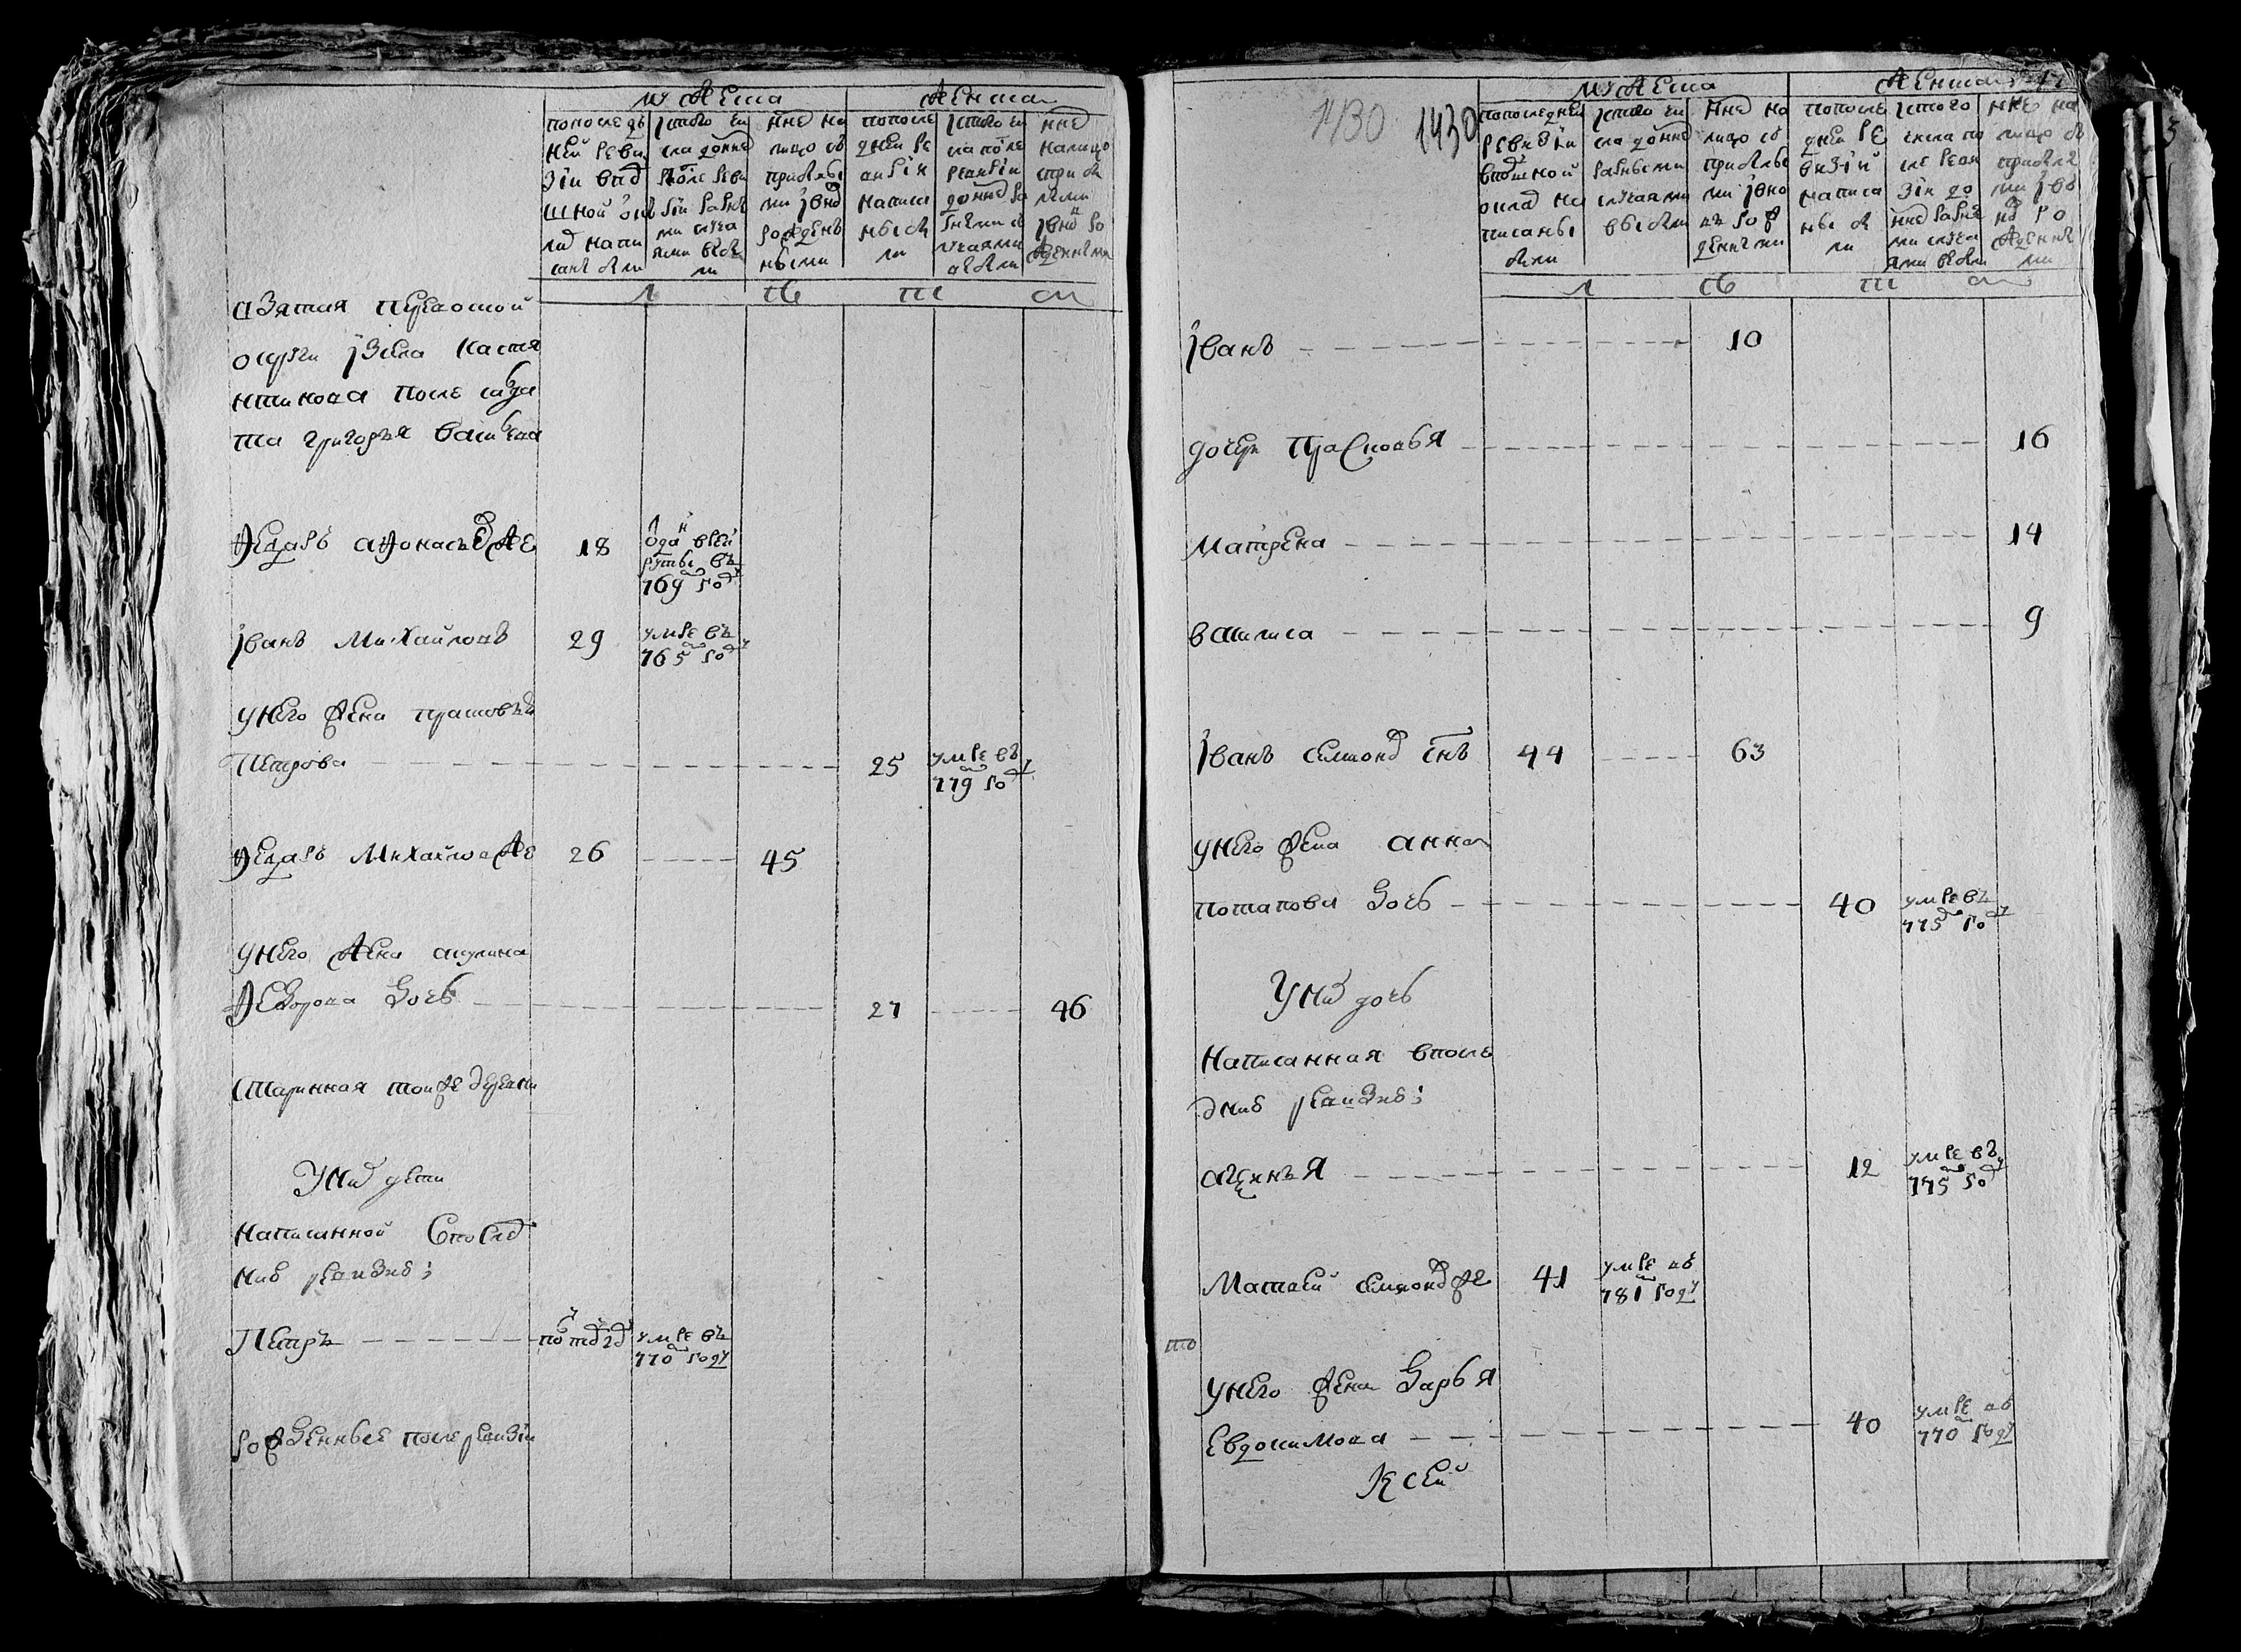 мужеска
женска
пописле дъ
ней реви
зіи в под
ушной окъ
лад напи
саны были
ис того чи
сла до нне
после реви
зіи разны
ми случа
ями выбы
ли
ннѣ на
лицо съ
прибылы
ми и вно
рожденъ
ными
по после
дней ре
визіи
написа
ны бы
ли
ис того чи
сла после
ревизіи
до нне ра
зными с
лучаями
выбыли
нне
на лицо
с прибы
лыми
и вно ро
жденными
взятая перевотой
округи и села Костя
нтинова после солда
та григорья василева
Федоръ афонасьевъ же
18
одан в рек
руты въ
769 году
Иванъ Михайловъ
29
умре въ
765 году
у него жена прасковья
Петрова
25
умре въ
779 году
Федоръ Михайловъ же
26
45
у него жена акулина
Федорова дочь
27
46
старинная той же деревни
У них дети
Написанной в послед
ней ревизіи;
Петръ
умре въ
770 году
рожденные после ревизіи
1430
1430
мужеска
женска
по последней
ревизіи
в подушной
оклад на
писаны
были
ис того чи
сла до нне
разными
случаями
выбыли
нне на
лицо съ
прибылы
ми и вно
вь рож
денными
по после
дней ре
визіи
написа
ны бы
ли
ис того
числа по
сле реви
зіи до
нне разны
ми случа
ями выбыли
нне на
лицо съ
прибылы
ми и въ
нов ро
жденны
ми
Иванъ
10
дочери Прасковья
16
Матрена
14
василиса
9
Иванъ семионов снъ
44
63
у него жена анна
потапова дочь
40
умре въ
775 году
У них дочь
Написанная в после
дней ревизіи;
агенья
12
умре въ
775 году
Матвей семионов же
41
умре въ
781 году
то
у него жена дарья
Евдокимова
40
умре въ
770 году
К сей